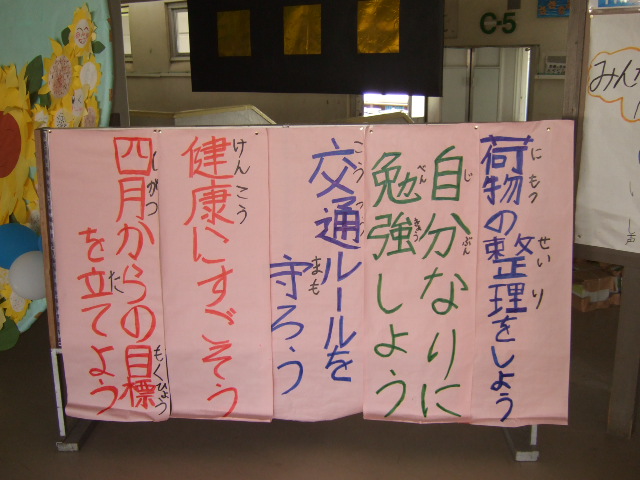 荷物の整理をしよう
にもつ
せいり
自分なりに
じぶん
勉強しよう
べんきょう
交通ルールを
こうつう
守ろう
まも
健康にすごそう
けんこう
四月からの目標
しがつ
もくひょう
を立てよう
た
C-5
みんな